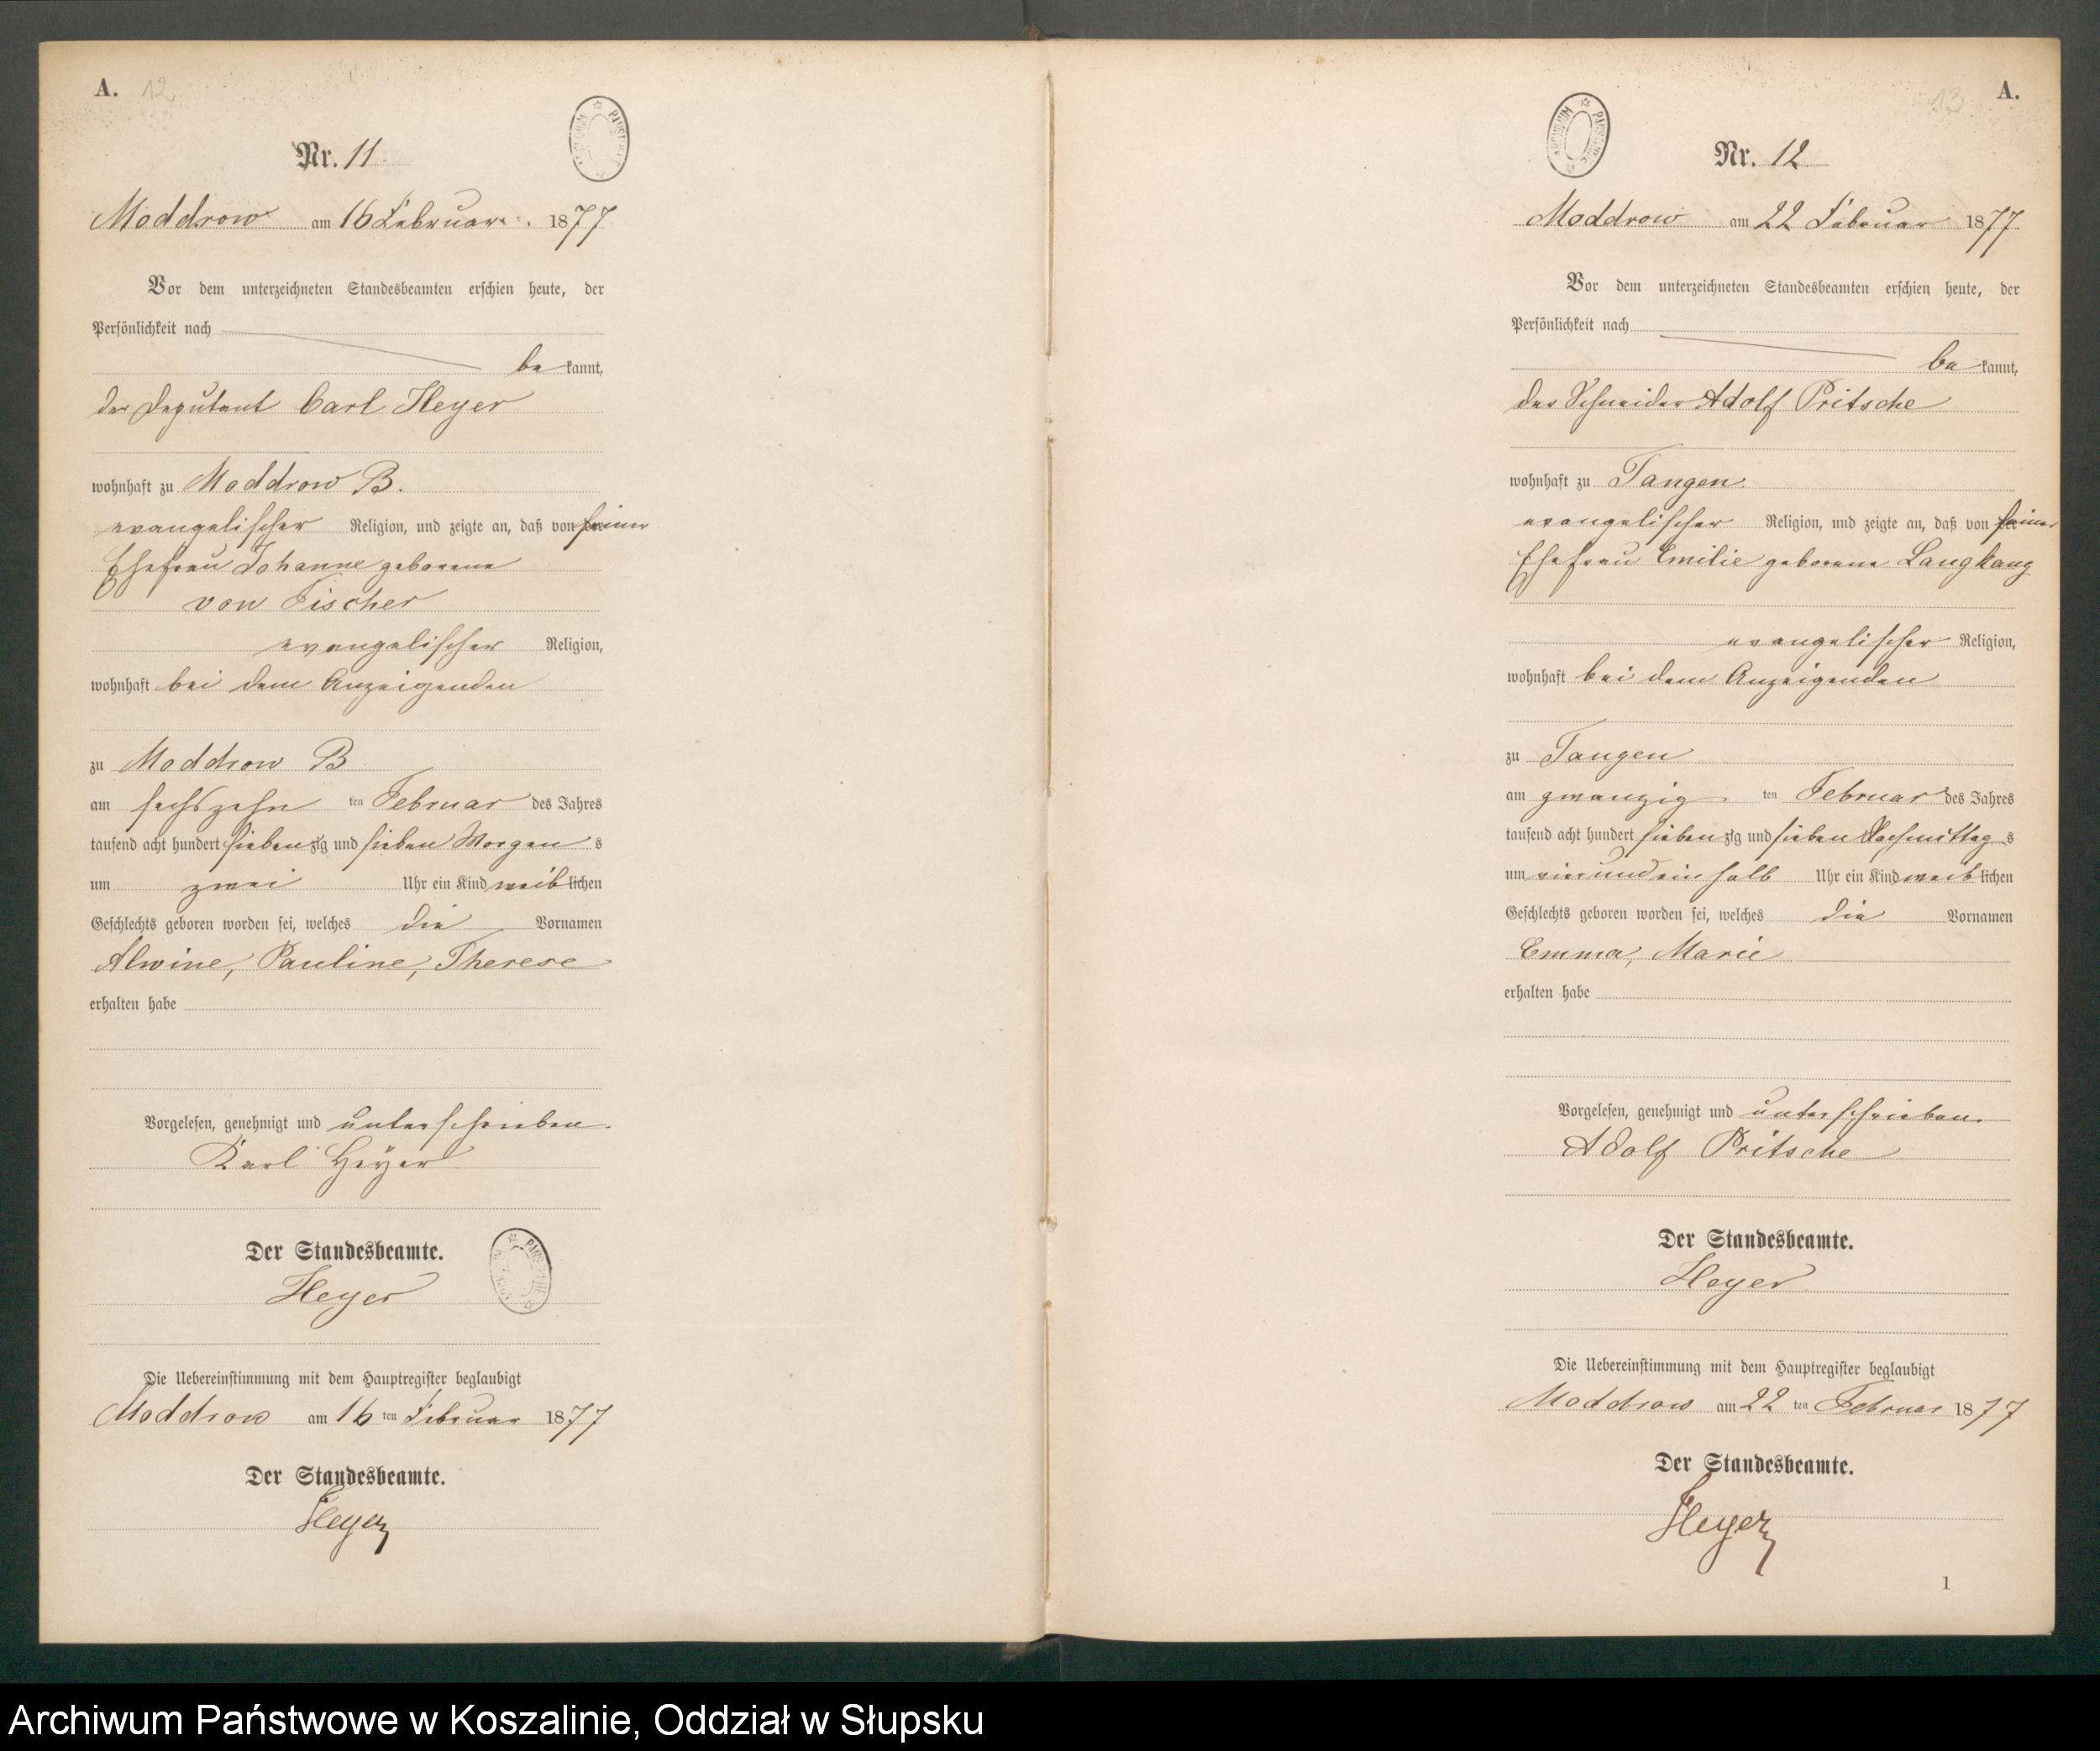 A. 12
Nr. 11.
Moddrow am 16 Februar. 1877
Vor dem unterzeichneten Standesbeamten erschien heute, der
Persönlichkeit nach
be kannt,
der Deputant Carl Heyer
wohnhaft zu Moddrow B.
evangelischer Religion, und zeigte an, daß von seiner
Ehefrau Johanne geborene
von Fischer
evangelischer Religion,
wohnhaft bei dem Anzeigenden
zu Moddrow B
am sechszehn ten Februar des Jahres
tausend acht hundert siebenzig und sieben Morgens
um zwei Uhr ein Kind weiblichen
Geschlechts geboren worden sei, welches die Vornamen
Alwine, Pauline, Therese
erhalten habe
Vorgelesen, genehmigt und unterschrieben.
Karl Heyer
Der Standesbeamte.
Heyer
Die Uebereinstimmung mit dem Hauptregister beglaubigt
Moddrow am 16 ten Februar 1877
Der Standesbeamte.
Heyer
13 A.
ARCHIWUM PAŃSTWOWE
Nr. 12
Moddrow am 22 Februar 1877
Vor dem unterzeichneten Standesbeamten erschien heute, der
Persönlichkeit nach
be kannt,
der Schneider Adolf Pritsche
wohnhaft zu Tangen.
evangelischer Religion, und zeigte an, daß von seiner
Ehefrau Emilie geborene Langkang
evangelischer Religion,
wohnhaft bei dem Anzeigenden
zu Tangen
am zwanzig ten Februar des Jahres
tausend acht hundert siebenzig und sieben Nachmittags
um einundeinhalb Uhr ein Kind weiblichen
Geschlechts geboren worden sei, welches die Vornamen
Emma, Marie
erhalten habe
Vorgelesen, genehmigt und unterschrieben.
Adolf Pritsche
Der Standesbeamte.
Heyer
Die Uebereinstimmung mit dem Hauptregister beglaubigt
Moddrow am 22 ten Februar 1877
Der Standesbeamte.
Heyer
1
Archiwum Państwowe w Koszalinie, Oddział w Słupsku